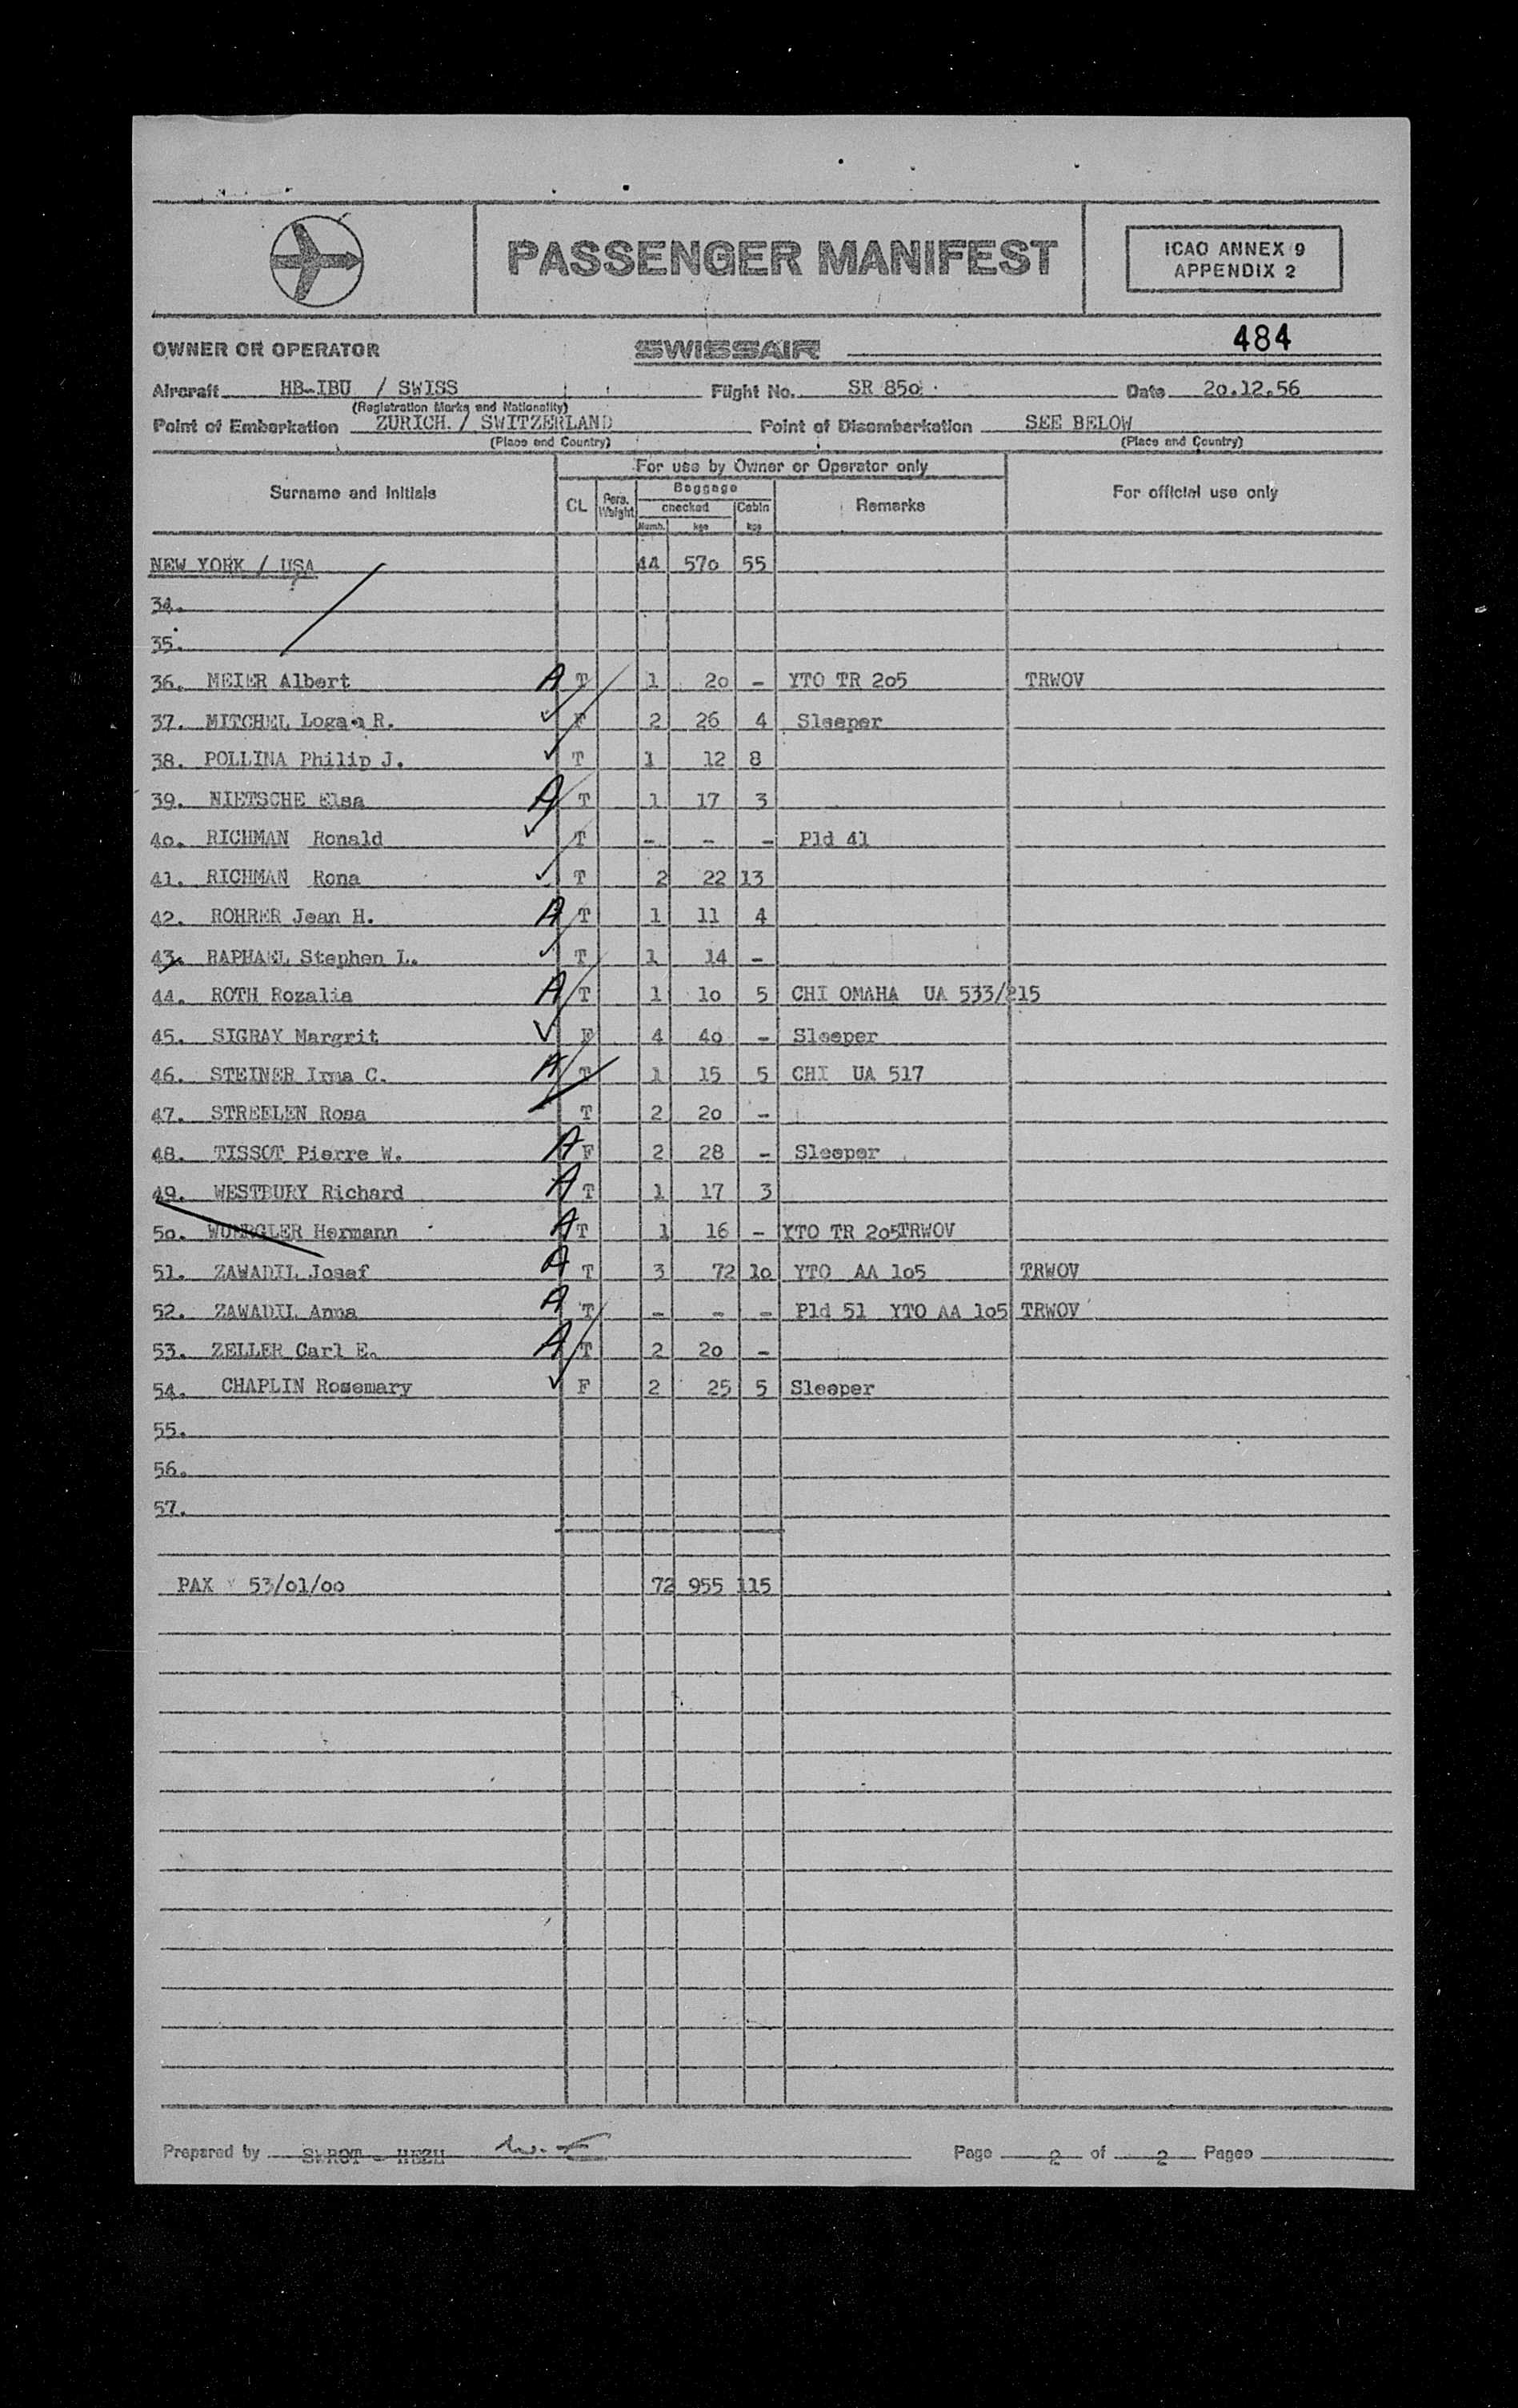 PASSENGER MANIFEST
ICAO ANNEX 9
APPENDIX 2
484
OWNER OR OPERATOR SWISSAIR
Aircraft HB-IBU / SWISS Flight No. SR 850 Date 20.12.56
(Registration Marks and Nationality)
Point of Embarkation ZURICH / SWITZERLAND Point of Disembarkation SEE BELOW
(Place and Country) (Place and Country)
For use by Owner or Operator only
Surname and Initials CL Pers. Weight Baggage Remarks For official use only
checked Cabin
Numb. kgs kgs
NEW YORK / USA 44 570 55
34.
35.
36. MEIER Albert A T 1 20 - YTO TR 205 TRWOV
37. MITCHEL Logan R. ✓ F 2 26 4 Sleeper
38. POLLINA Philip J. ✓ T 1 12 8
39. NIETSCHE Elsa A T 1 17 3
40. RICHMAN Ronald ✓ T - - - Pld 41
41. RICHMAN Rona ✓ T 2 22 13
42. ROHRER Jean H. A T 1 11 4
43. RAPHAEL Stephen L. ✓ T 1 14 -
44. ROTH Rozalia A T 1 10 5 CHI OMAHA UA 533/215
45. SIGRAY Margrit ✓ F 4 40 - Sleeper
46. STEINER Irma C. A T 1 15 5 CHI UA 517
47. STREELEN Rosa T 2 20 -
48. TISSOT Pierre W. A F 2 28 - Sleeper
49. WESTBURY Richard A T 1 17 3
50. Hermann A T 1 16 - YTO TR 205TRWOV
51. ZAWADIL Josef A T 3 72 10 YTO AA 105 TRWOV
52. ZAWADIL Anna A T - - - Pld 51 YTO AA 105 TRWOV
53. ZELLER Carl E. A T 2 20 -
54. CHAPLIN Rosemary ✓ F 2 25 5 Sleeper
55.
56.
57.
PAX 53/01/00 72 955 115
Prepared by Page 2 of 2 Pages